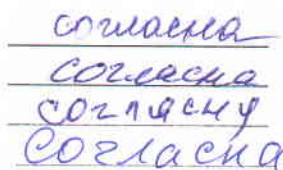 согласна
согласна
согласну
Согласна